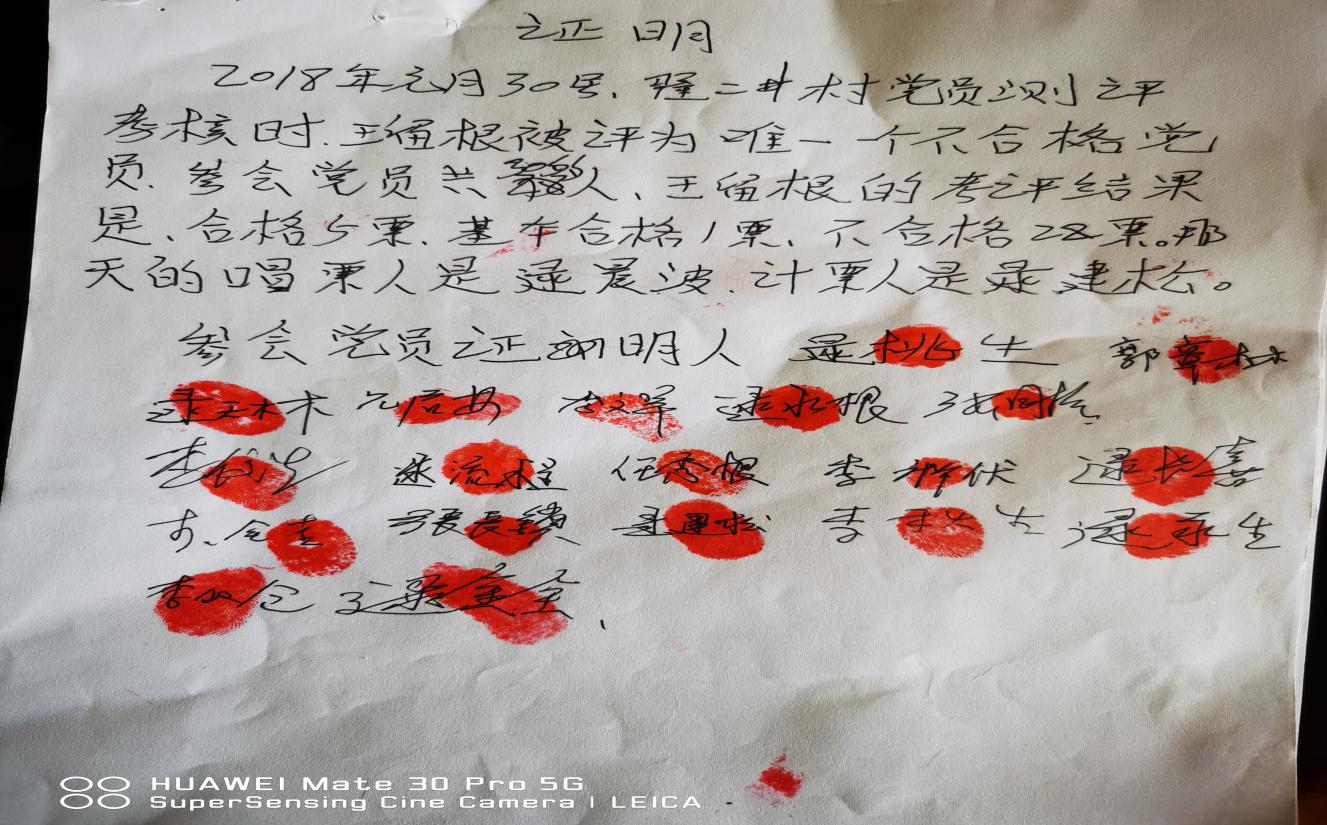 证明
2018年元月30号、隆二井村党员测评
考核时.王留根被评为唯一个不合格党
员.参会党员共人、王留根的考评结果
是、合格5票.基本合格1票、不合格28票。那
天的唱票人是逯晨波.计票人是逯建松。
参会党员证明人 逯桃生 郭章林
逯玉木 逯永根
李 逯流程 任秀根 李 伏 逯长喜
长锁 逯建松 李 生 逯永生
李 仓 逯金全
HUAWEI Mate 30 Pro 5G
SuperSensing Cine Camera | LEICA